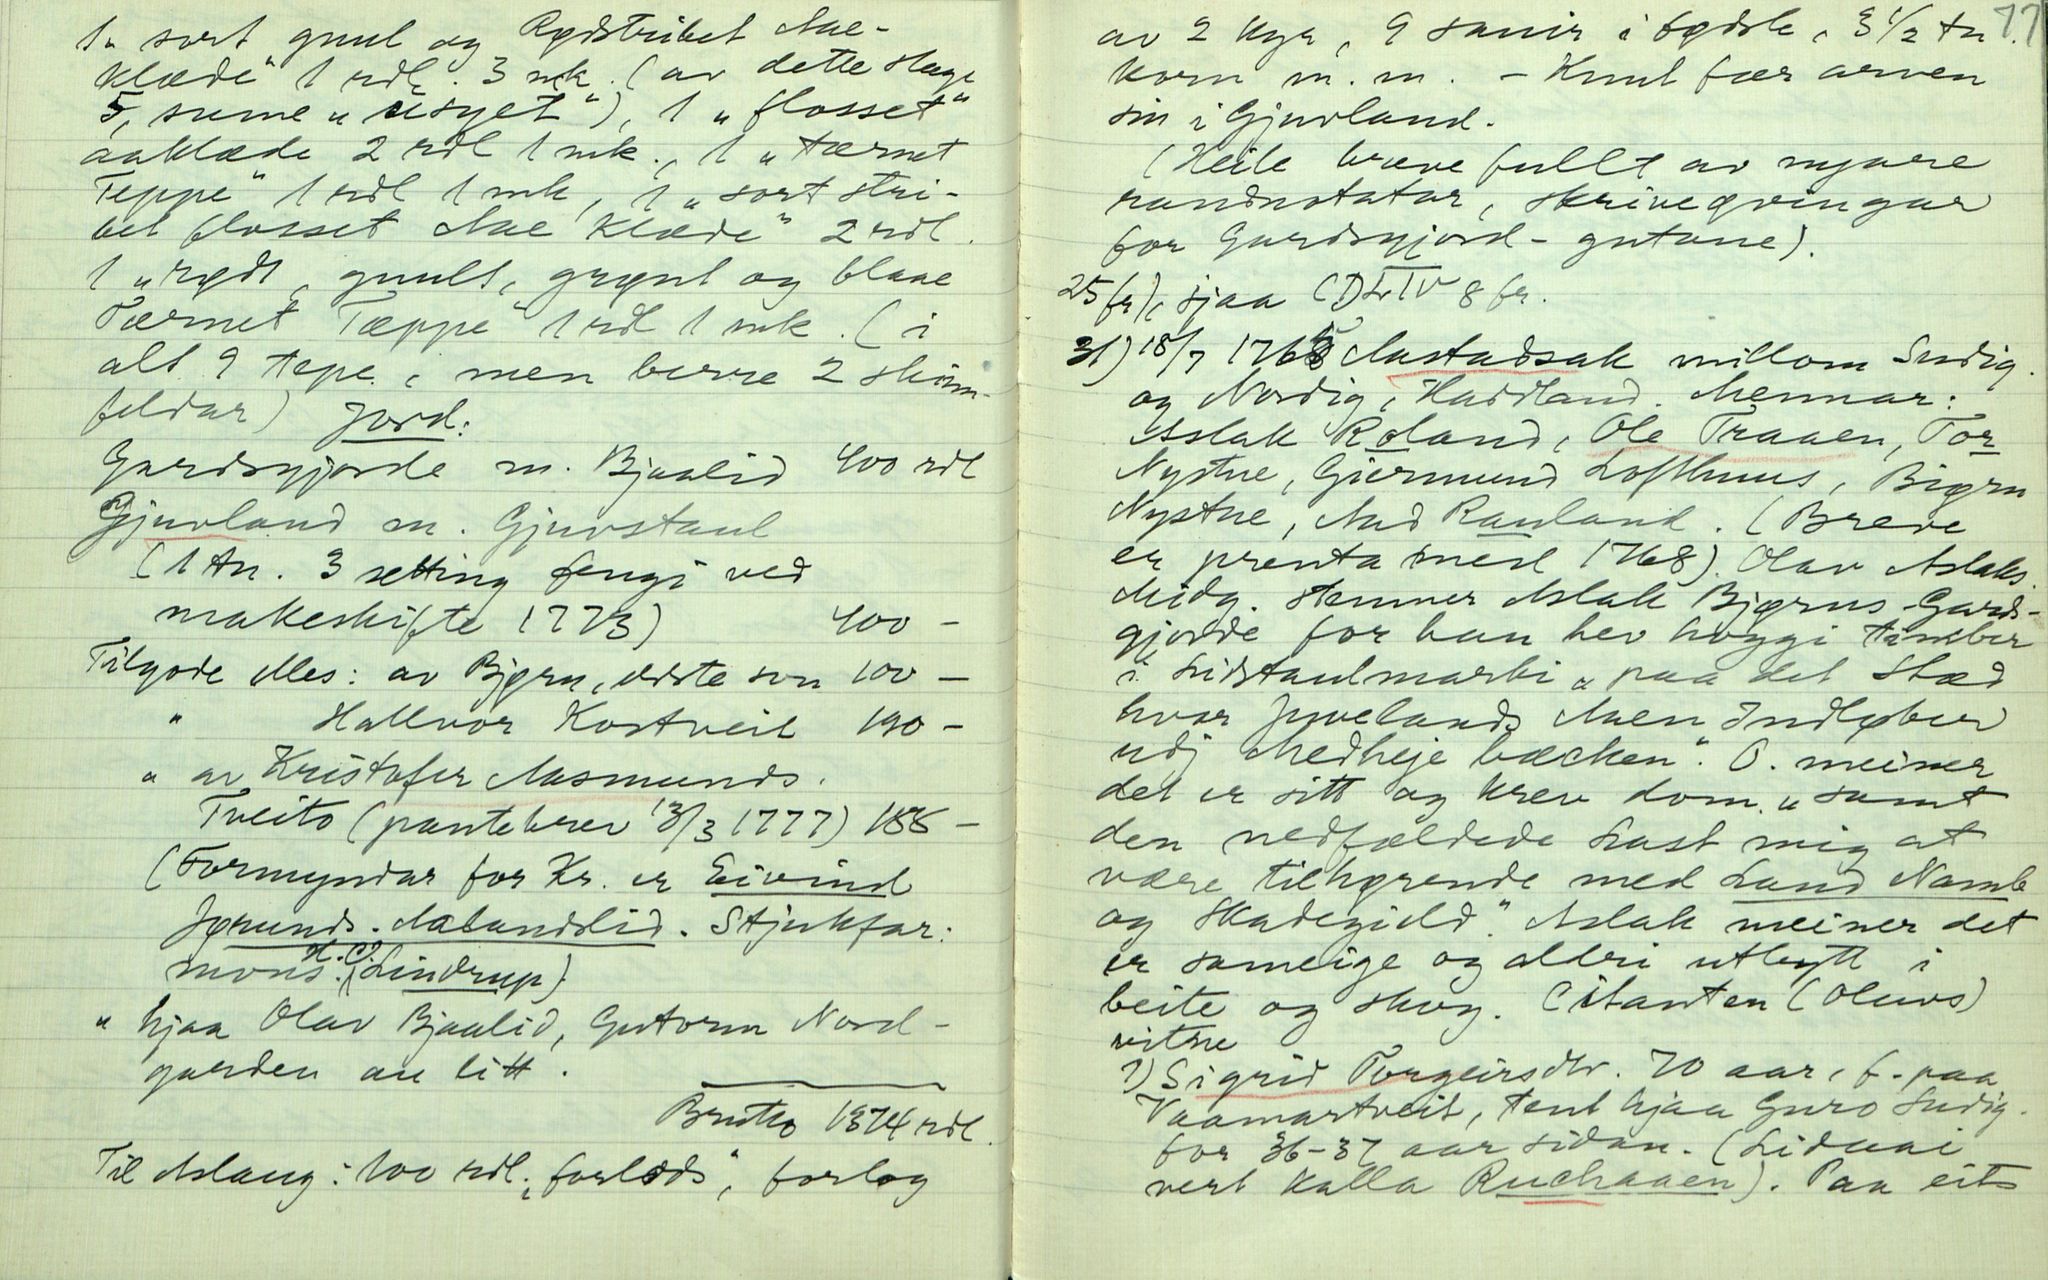 1 „ sort guul og Rødstribet Aae-
klæde" 1 rdl. 3 mk. (av dette slage
5, sume „usyet"), 1 „flosset"
aaklæde 2 rdl 1 mk., 1 „tærnet
Teppe" 1 rdl 1 mk, 1 „sort stri-
bet flosset Aae Klæde" 2 rdl.
1 „rødt, guult, grønt og blaae
Tærnet Tæppe" 1 rdl 1 mk. (i
alt 9 tepe, men berre 2 skinn-
feldar) Jord:
Gardsgjorde m. Bjaalid 400 rdl
Gjuvland m. Gjuvstaul
(1 tn. 3 setting fengi ved
makeskifte 1773) 400 -
Tilgode elles: av Bjørn, eldste son 100 -
" Hallvor Kostveit 190 -
" av Kristofer Aasmunds.
Tveito (pantebrev 13/3 1777) 188 -
(Formyndar for Kr. er Eivind
Jørunds. Aabandslid. Stjukfar:
mons. H. C. (Lindrup)
" hjaa Olav Bjaalid, Gutorm Nord-
garden au litt.
Brutto 1374 rdl.
Til Aslaug: 100 rdl. „forlods", forlog
77
av 2 kyr, 9 sauir i fødsle, 3 1/2 tn.
korn m. m. - Knut fær arven
sin i Gjuvland.
(Heile breve fullt av nyare
randnotatar, skriveøvingar
for Gardsgjord-gutane).
25 fr), sjaa CDLIV 8 fr.
31) 18/7 1765 Aastadsak millom Sudig.
og Nordig, Haddland. Mennar:
Aslak Roland, Ole Traaen, Tor
Nystue, Giermund Lofthuus, Biørn
Nystue, Aad Rauland. (Breve
er prenta med 1768). Olav Aslaks.
Midg. stemner Aslak Bjørns. Gards-
gjorde for han hev hoggi timber
i Lidstaulmarki „paa det Stæd
hvor Juvelands Aaen Indløber
udj Medheje bæcken". O. meiner
det er sitt og krev dom „samt
den nedfældede Last mig at
være tilhørende med Land Namb
og Skadegield." Aslak meiner det
er sameige og aldri utbytt i
beite og skog. Citanten (Olavs)
vitne
1) Sigrid Torgeirsdtr. 70 aar, f. paa
Vaamartveit, tent hjaa Guro Sudig.
for 36-37 aar sidan. (Lidaai
vert kalla Ruchaaen). Paa eit